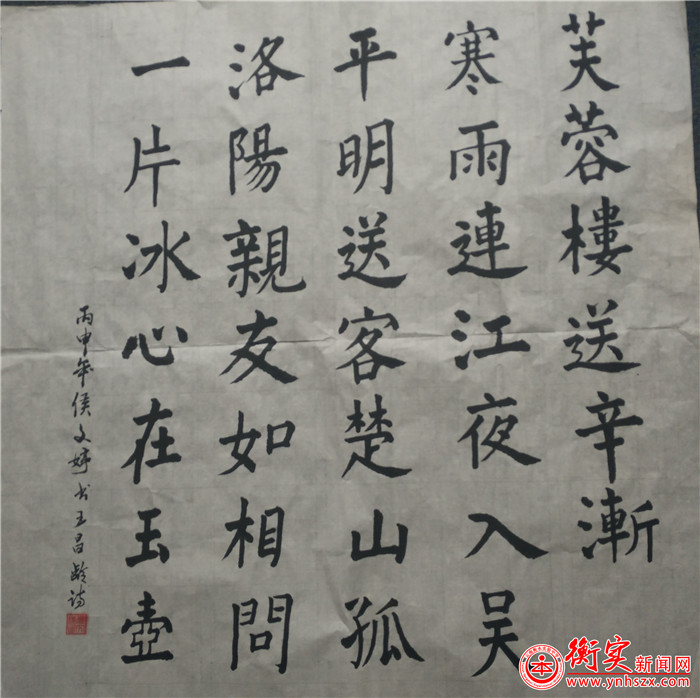 芙蓉樓送辛漸
寒雨連江夜入吴
平明送客楚山孤
洛陽親友如相問
一片冰心在玉壺
丙申年侯文婷书王昌龄诗
衡实新闻网
www.ynhszx.com